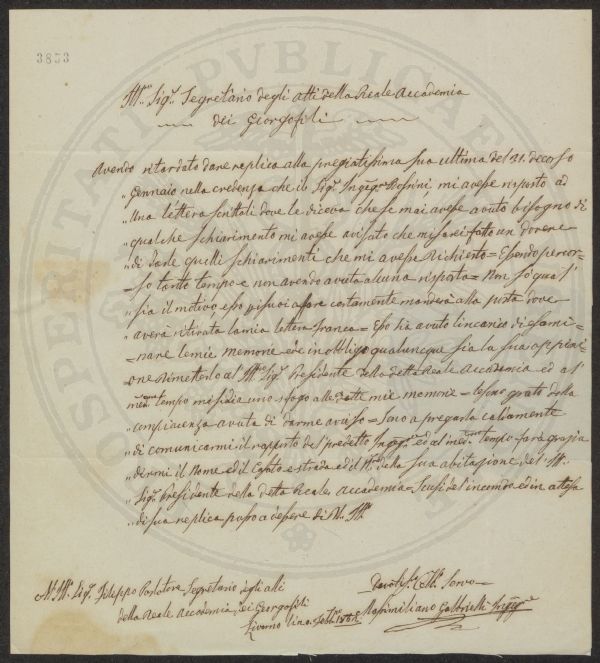 3853
Ill.mo Sig.r Segretario degli atti della Reale Accademia
dei Georgofili
Avendo ritardato dare replica alla pregiatissima sua ultima del 21. decorso
„ Gennaio nella credenza che il Sig.r Ingeg.re Rossini mi avesse risposto ad
„ Una lettera scrittoli dove le diceva che se mai avesse avuto bisogno di
„ qualche schiarimento mi avesse avisato che mi sarei fatto un dovere
„ di darle quelli schiarimenti che mi avesse Richiesto = Essendo percor-
„ so tanto tempo e non avendo avuta alcuna risposta = Non so qual'
„ sia il motivo
certamente manderà alla posta dove
„ averà ritirata la mia lettera franca = Esso ha avuto l'incarico di esami-
„ nare le mie memorie ed è in obbligo qualunque sia la sua oppini-
one Rimetterlo al Ill.mo Sig.r Presidente della detta Reale Accademia ed al
med.mo tempo mi si dia uno sfogo alle dette mie memorie = le sono grato della
„ compiacenza avuta di darme avviso = Sono a pregarla caldamente
„ di comunicarmi il rapporto del predetto Ingeg.re ed al med.mo tempo farà grazia
„ dirmi il Nome ed il Casato e strada ed il N.o della sua abitazione del Ill.
„ Sig.r Presidente della detta Reale Accademia = Scusi de l'incomodo ed in attesa
„ di sua replica passo a dessere di V. Ill.ma
Al Ill. Sig.r Filippo Segretario degli atti
della Reale Accademia dei Georgofili
Livorno
Devot. Servo
Massimiliano Gabbrielli Ingeg.re
PROSPERITATI PUBLICAE